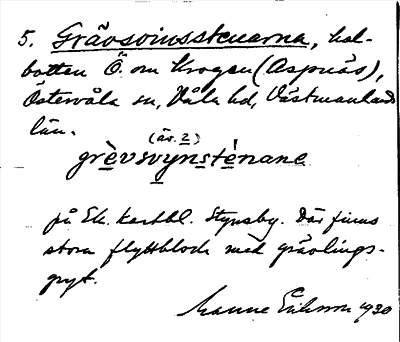 5. Grävsvinsstenarna, hal-
botten Ö. om Krogen (Aspnäs),
Östervåla sn, Våla hd, Västmanlands
län.
(äv. 2)
grèvsvynsténane
på Ek. kartbl. Stynsby. Där finns
stora flyttblock med grävlings-
gryt.
Manne Eriksson 1930